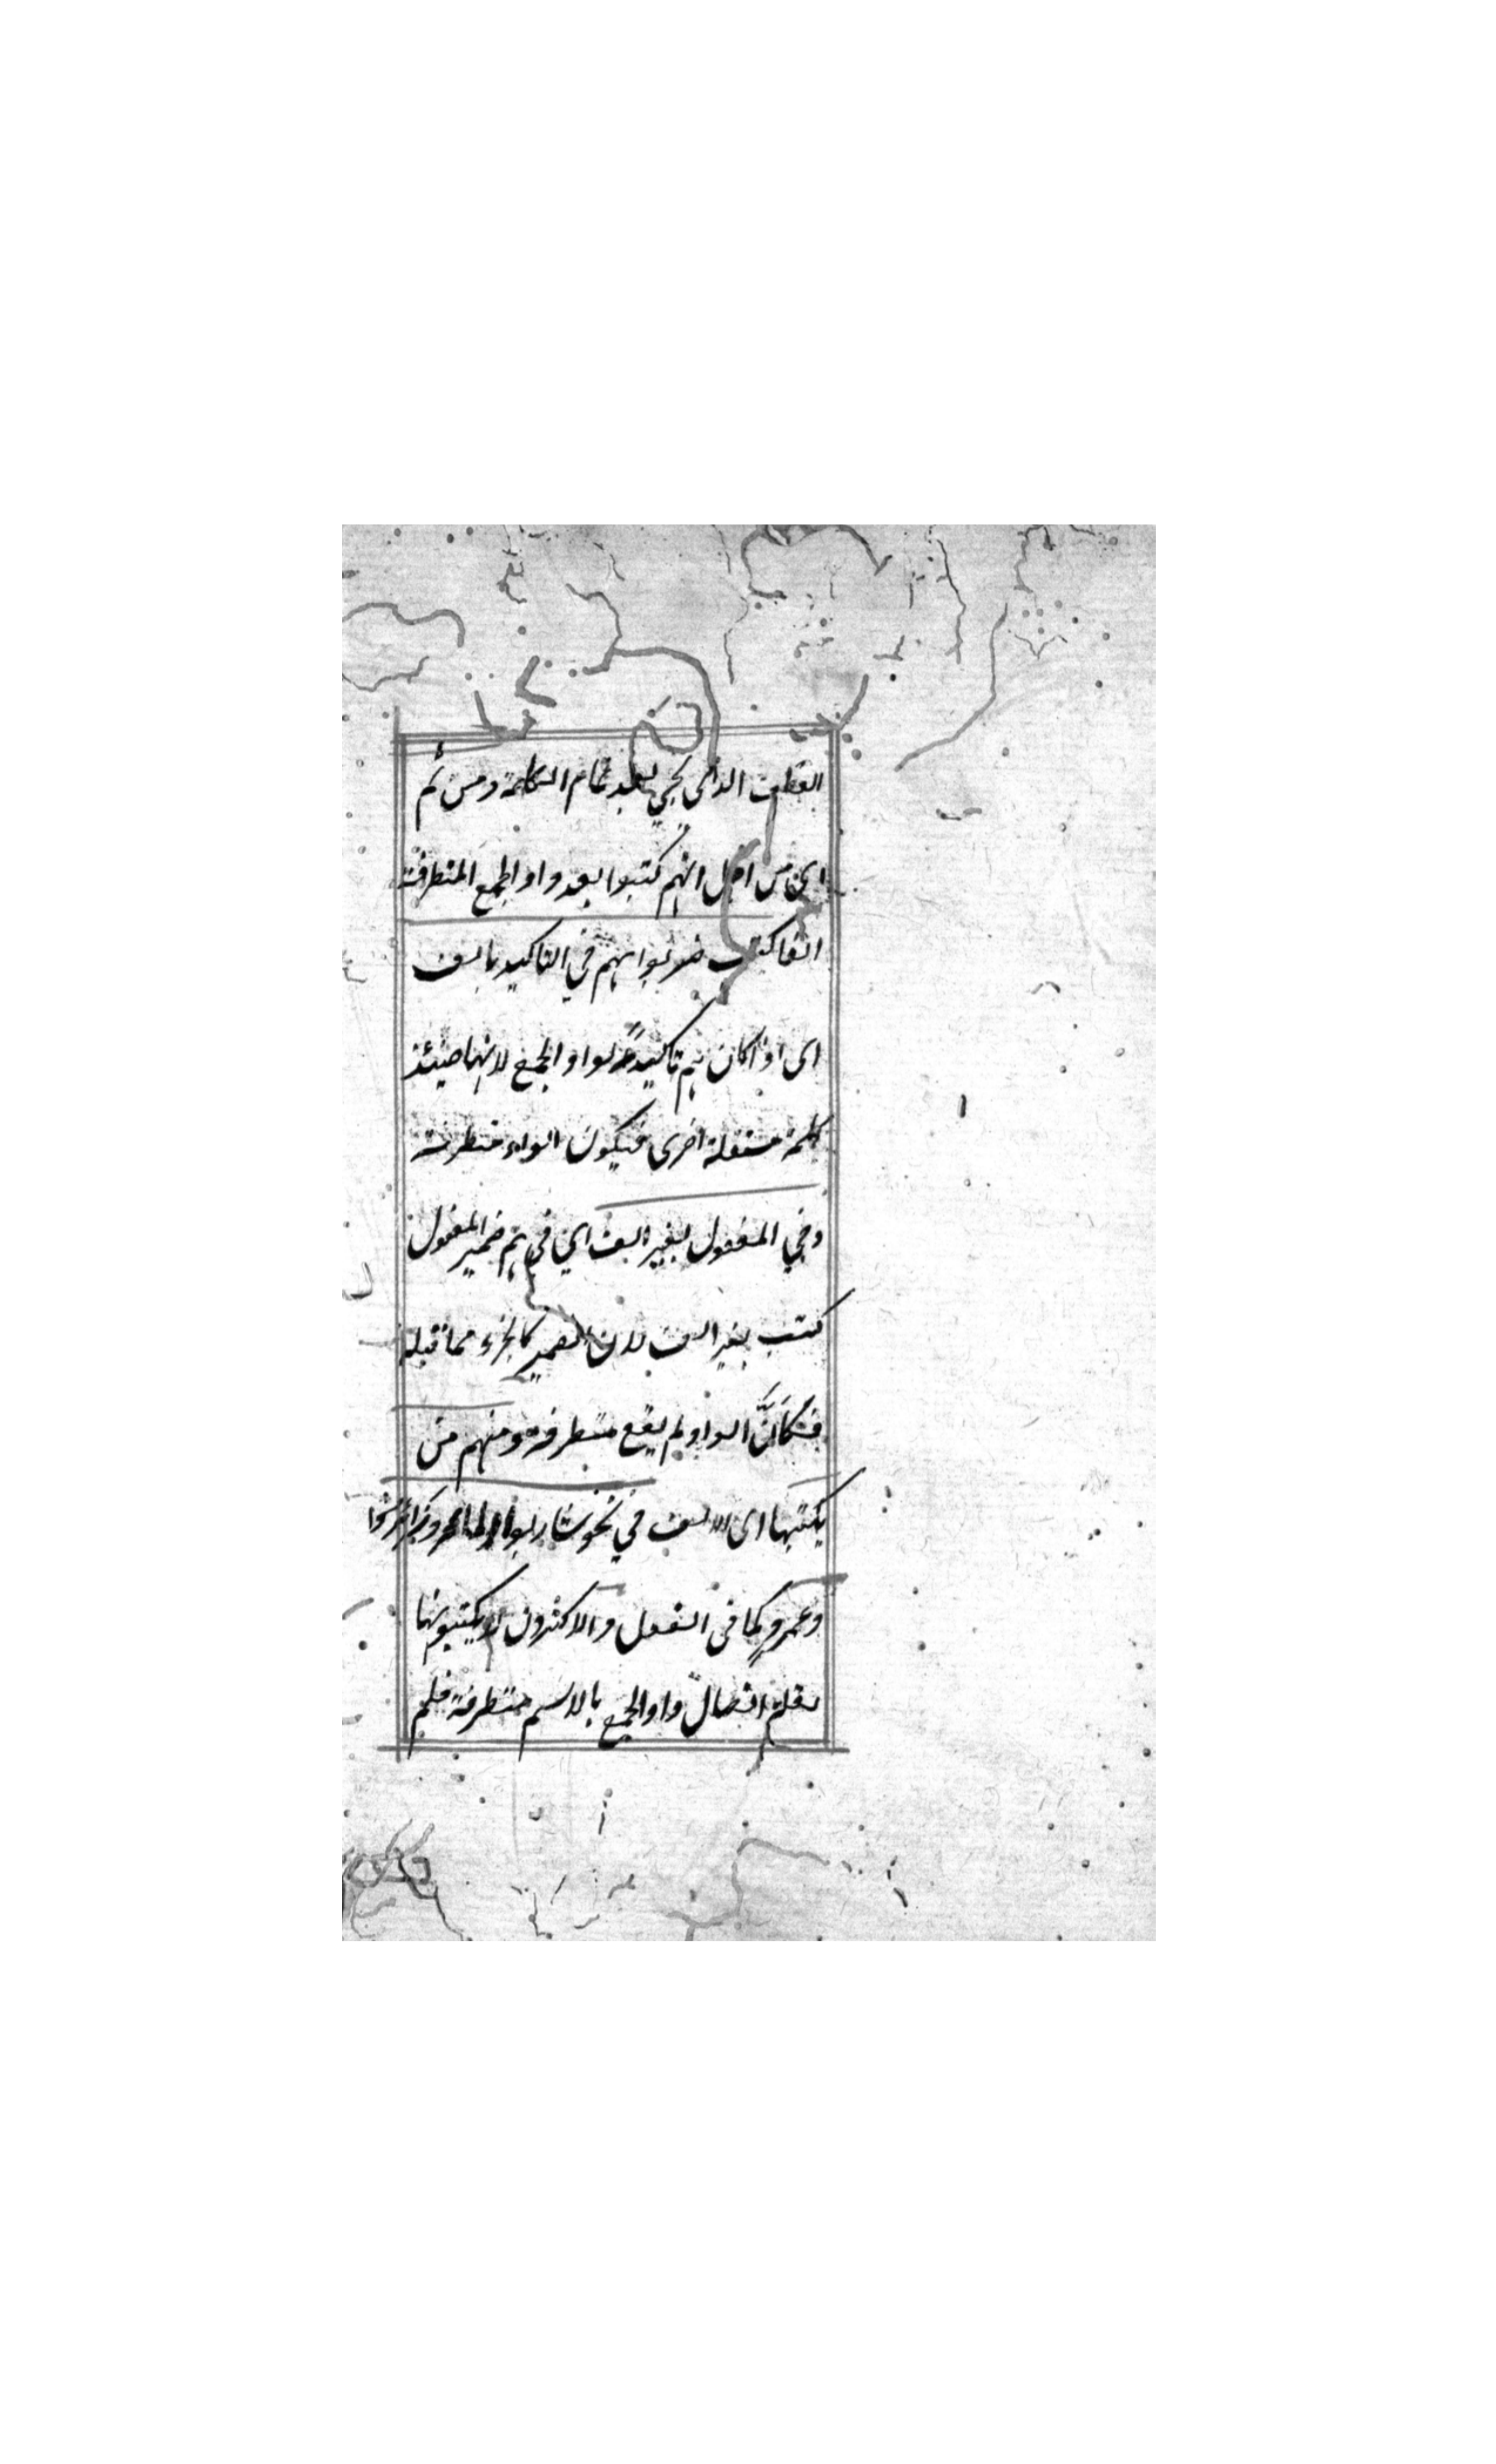 العطف الذي يجيء بعد تمام الكلمة ومن ثم
اى من اجل انهم كتبوا بعد واو الجمع المتطرفة
الفا كتب ضربوا هم في التاكيد بالف
اى اذا كان هم تاكيدا لواو الجمع لانها حينئذ
كلمة مستقلة اخرى فيكون الواو متطرفة
وفي المفعول بغير الف اي في هم ضمير المفعول
كتب بغير الف لان الضمير كالجزء مما قبله
فكانَّ الواو لم يقع متطرفة ومنهم من
يكتبها اى الالف في نحو شاربوا الماء
وعمرو كما في الفعل والاكثرون لا يكتبونها
لقلة اتصال واو الجمع بالاسم متطرفة فلم